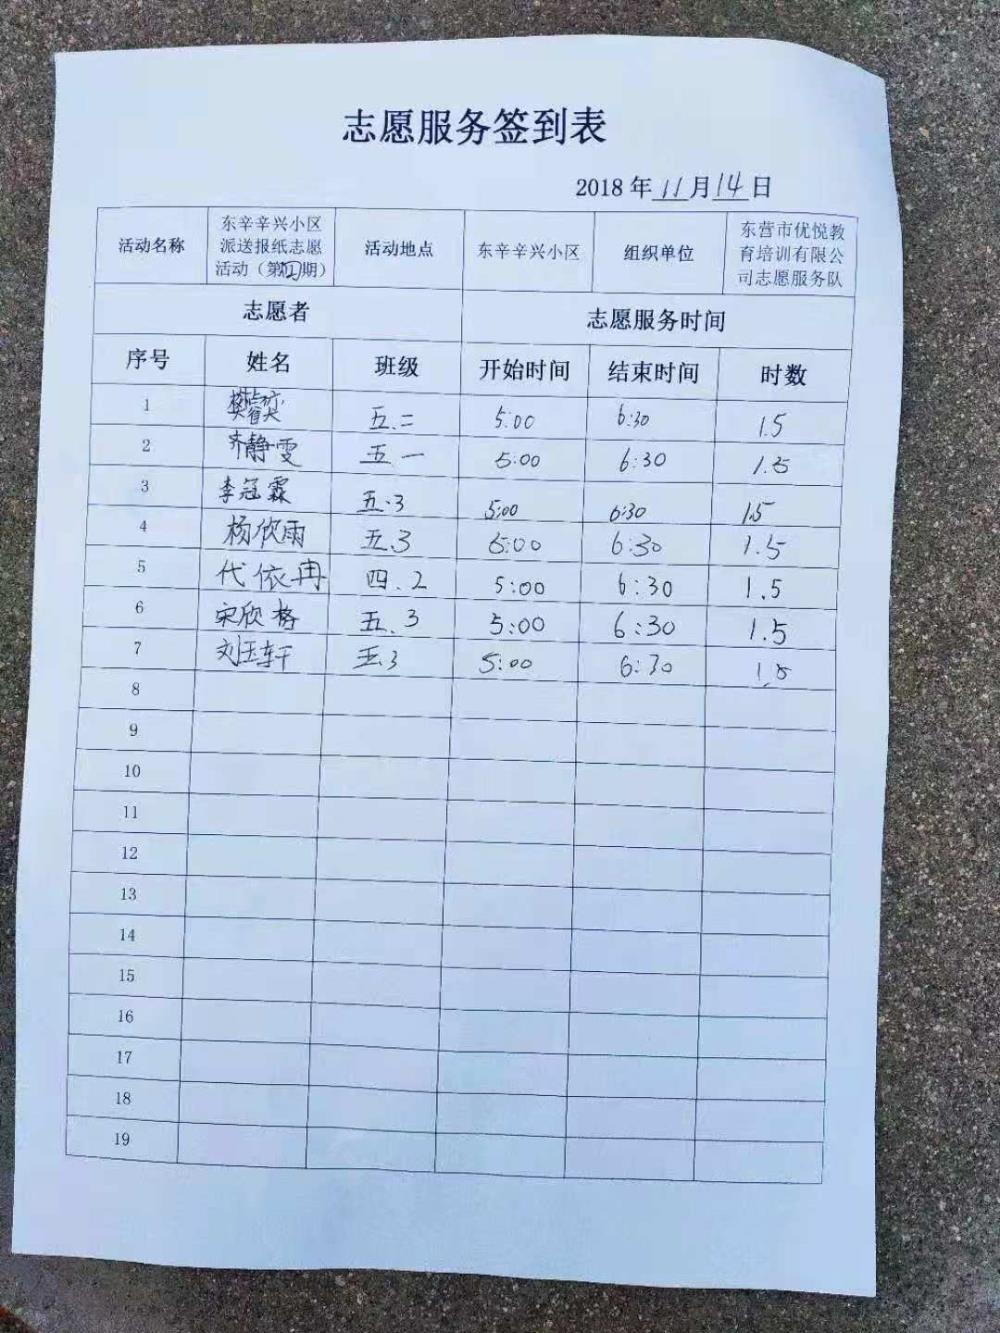 志愿服务签到表
2018 年 11 月 14 日
活动名称 东辛辛兴小区派送报纸志愿活动（第四期） 活动地点 东辛辛兴小区 组织单位 东营市优悦教育培训有限公司志愿服务队
志愿者 志愿服务时间
序号 姓名 班级 开始时间 结束时间 时数
1 五.二 5:00 6:30 1.5
2 齐静雯 五一 5:00 6:30 1.5
3 李冠霖 五.3 5:00 6:30 1.5
4 杨欣雨 五.3 5:00 6:30 1.5
5 代依冉 四.2 5:00 6:30 1.5
6 宋欣 五.3 5:00 6:30 1.5
7 刘玉轩 五.3 5:00 6:30 1.5
8
9
10
11
12
13
14
15
16
17
18
19